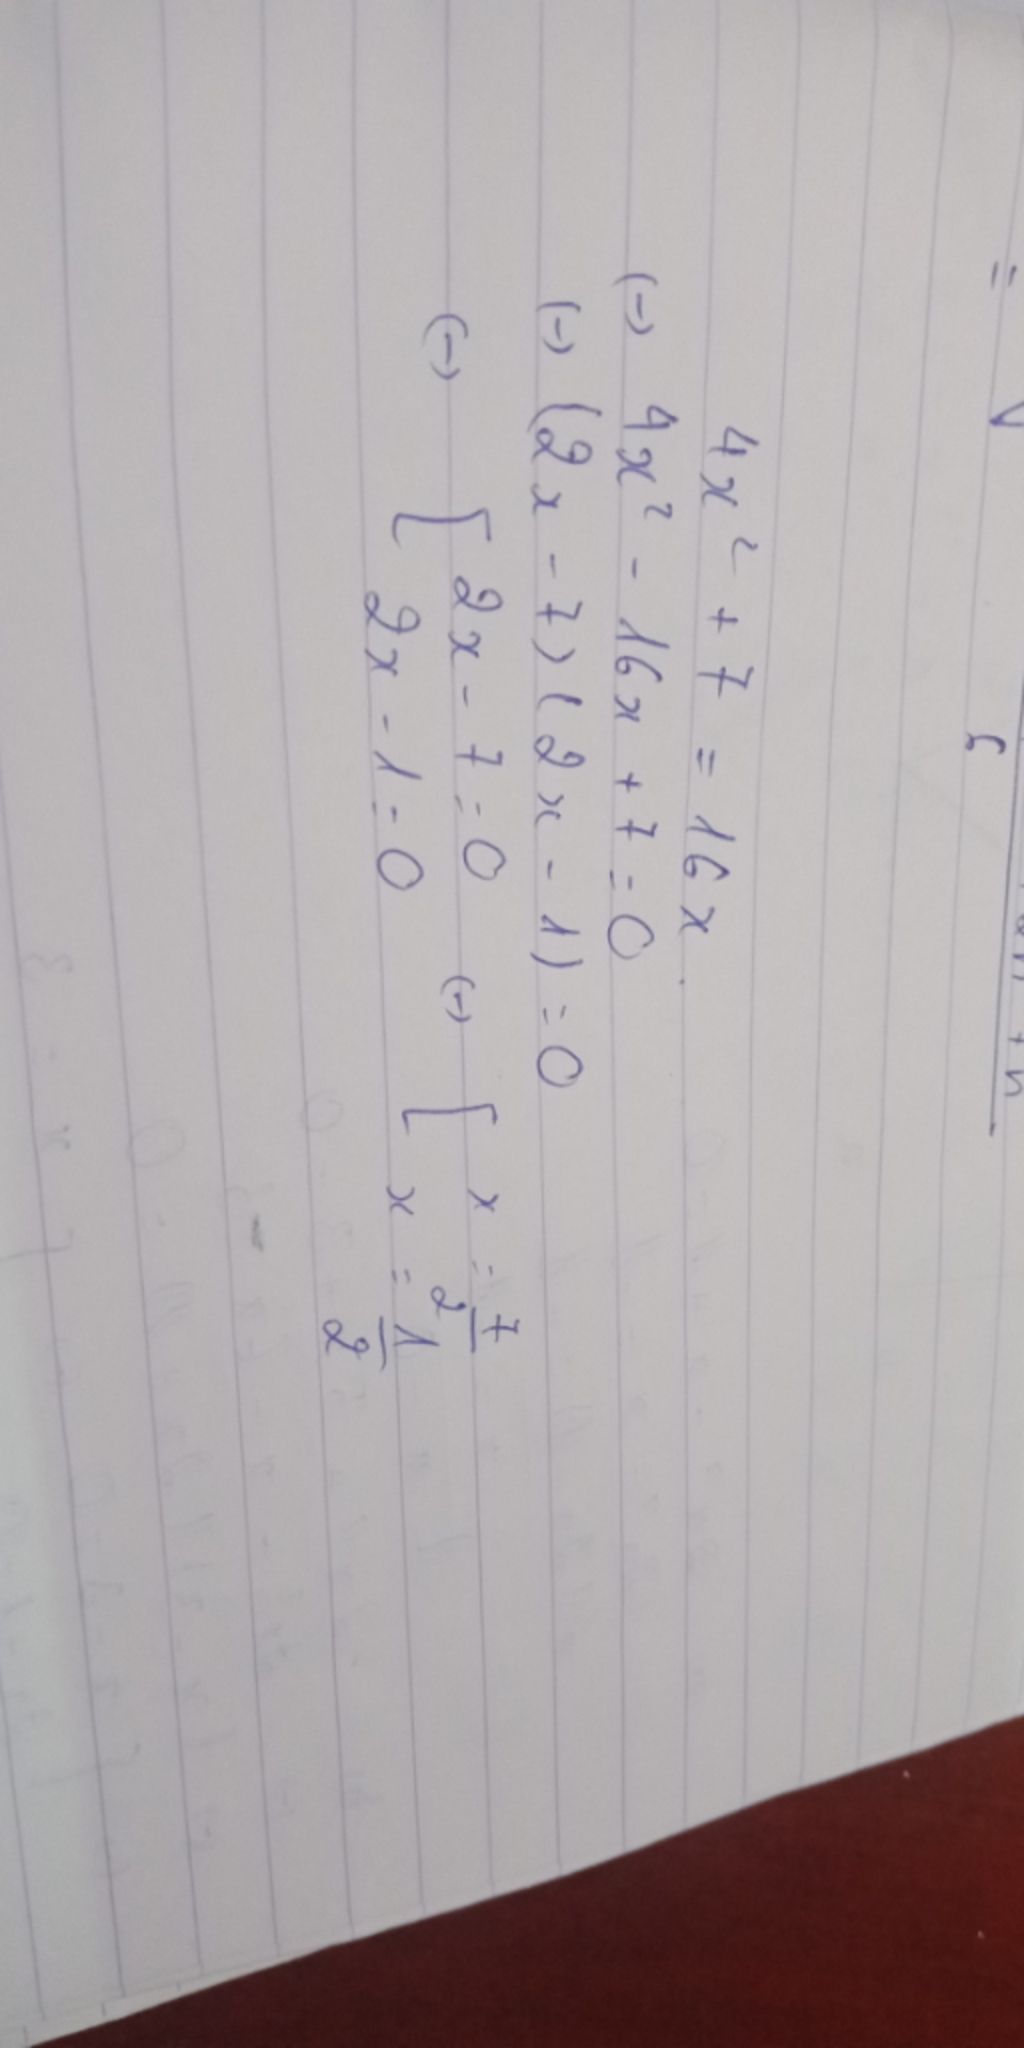 4x² + 7 = 16x
(-) 4x² - 16x + 7 = 0
(-) (2x - 7)(2x - 1) = 0
(-) [ 2x - 7 = 0 (-) [ x = 7/2
2x - 1 = 0 x = 1/2